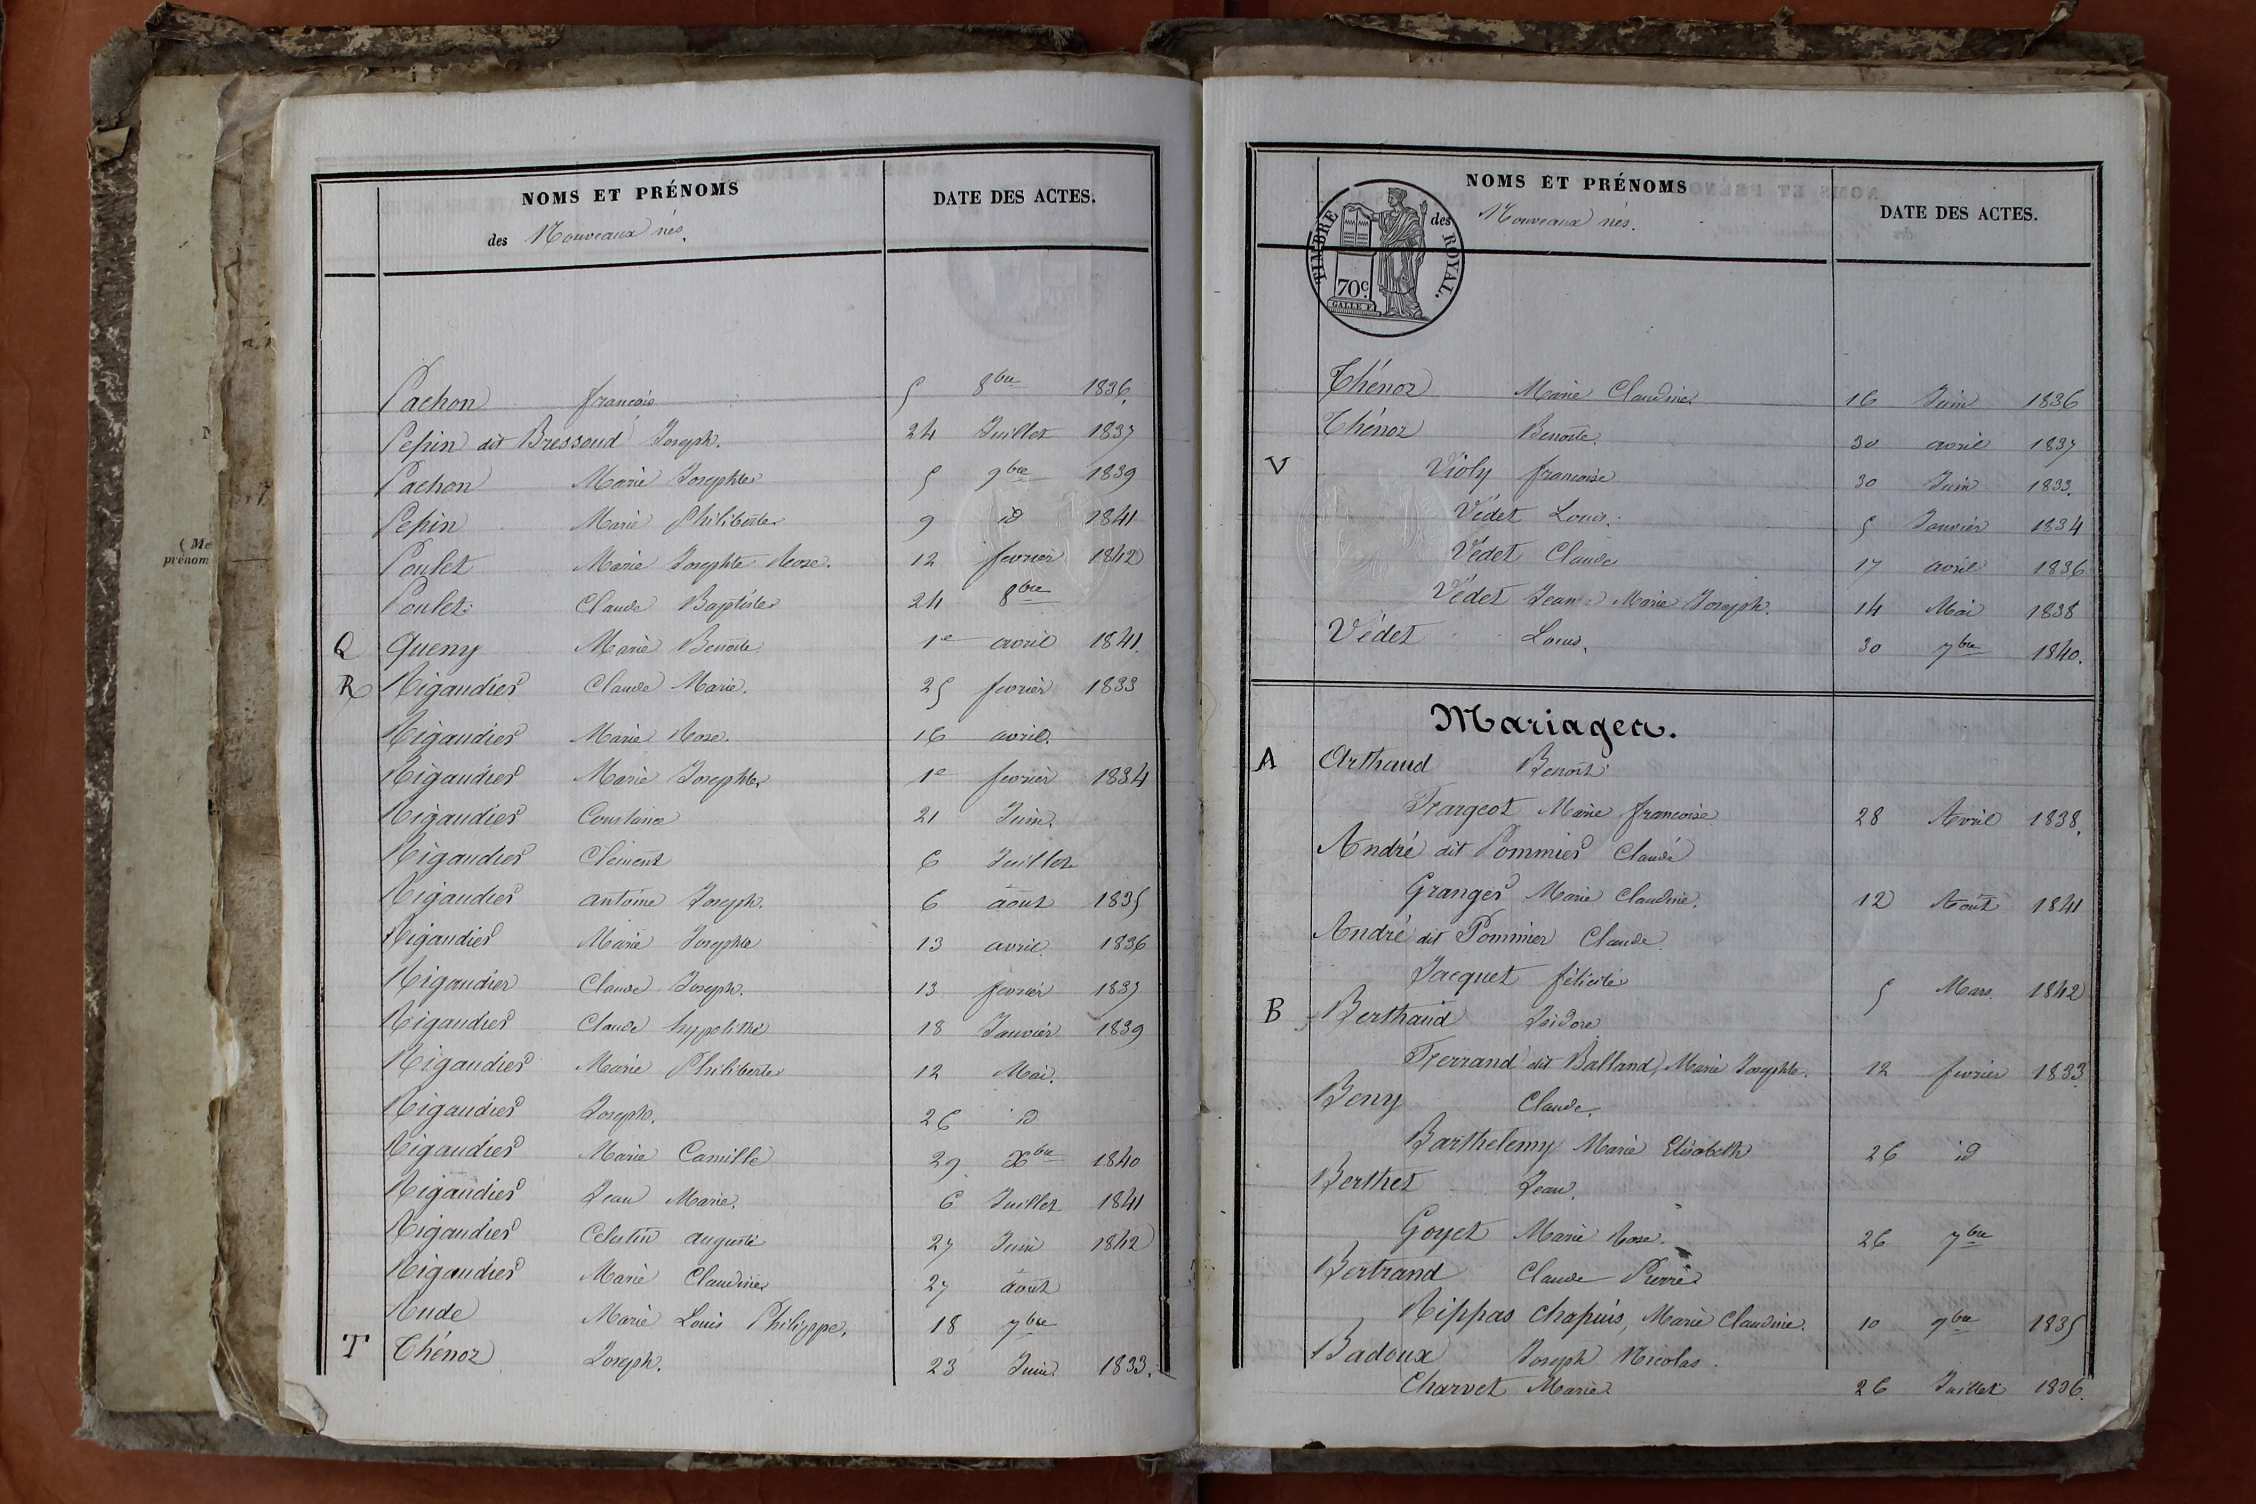 NOMS ET PRÉNOMS
DATE DES ACTES.
des Nouveaux nés.
Pachon françois 5 8bre 1836.
Pepin dit Bressoud Joseph. 24 Juillet 1837
Pachon Marie Josephte 5 9bre 1839
Pepin Marie Philiberte 9 id 1841
Poulet Marie Josephte Rose. 12 fevrier 1842
Poulet Claude Baptiste 24 8bre
Q Queny Marie Benoite 1e avril 1841.
R Rigaudier Claude Marie. 25 fevrier 1833
Rigaudier Marie Rose. 16 avril.
Rigaudier Marie Josephte 1e fevrier 1834
Rigaudier Constance 21 Juin.
Rigaudier Clément 6 Juillet
Rigaudier antoine Joseph. 6 août 1835
Rigaudier Marie Josephte 13 avril 1836
Rigaudier Claude Joseph. 13 fevrier 1837
Rigaudier Claude hyppolithe 18 Janvier 1839
Rigaudier Marie Philiberte 12 Mai.
Rigaudier Joseph. 26 id
Rigaudier Marie Camille 29 Xbre 1840
Rigaudier Jean Marie. 6 Juillet 1841
Rigaudier Celestin auguste 27 Juin 1842
Rigaudier Marie Claudine 27 août
Rude Marie Louis Philippe. 18 7bre
T Thénoz Joseph. 23 Juin 1833.
(Me
prénom
NOMS ET PRÉNOMS
DATE DES ACTES.
des Nouveaux nés.
TIMBRE ROYAL.
70c.
GALLE F.
Thénoz Marie Claudine 16 Juin 1836
Thénoz Benoite. 30 avril 1837
V Violy françoise 30 Juin 1833.
Védet Louis. 5 Janvier 1834
Védet Claude 17 avril 1836
Védet Jean Marie Joseph 14 Mai 1838
Védet Louis. 30 7bre 1840.
Mariages.
A Arthaud Benoit
Frargeot Marie françoise 28 Avril 1838.
André dit Pommier Claude
Granger Marie Claudine. 12 Août 1841
André dit Pommier Claude.
Jacquet félicité 5 Mars 1842
B Berthaud Isidore
Ferrand dit Balland, Marie Josephte. 12 fevrier 1833
Beny Claude.
Barthelemy Marie Elisabeth 26 id
Berthet Jean.
Goyet Marie Rose. 26 7bre
Bertrand Claude Pierre
Rippas Chapuis, Marie Claudine. 10 9bre 1835
Badoux Joseph Nicolas.
Charvet Marie 26 Juillet 1836.